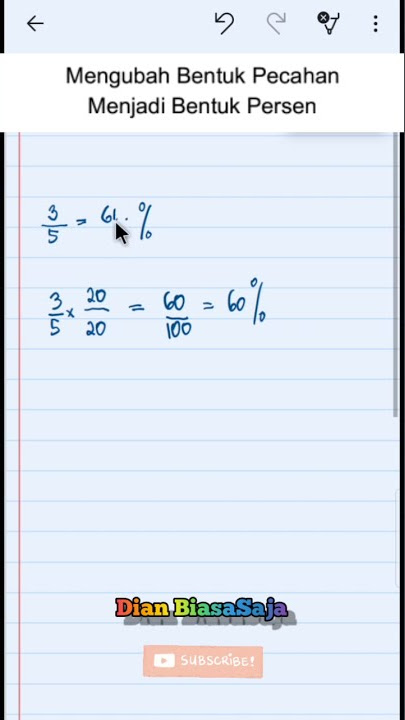 Mengubah Bentuk Pecahan
Menjadi Bentuk Persen
3/5 = 6 . . %
3/5 x 20/20 = 60/100 = 60%
Dian BiasaSaja
SUBSCRIBE!